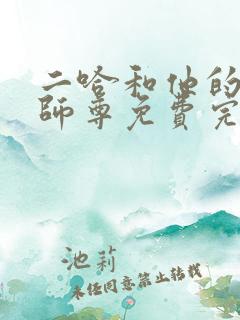 二哈和他的
師尊免費完
池莉
未经同意禁止转载